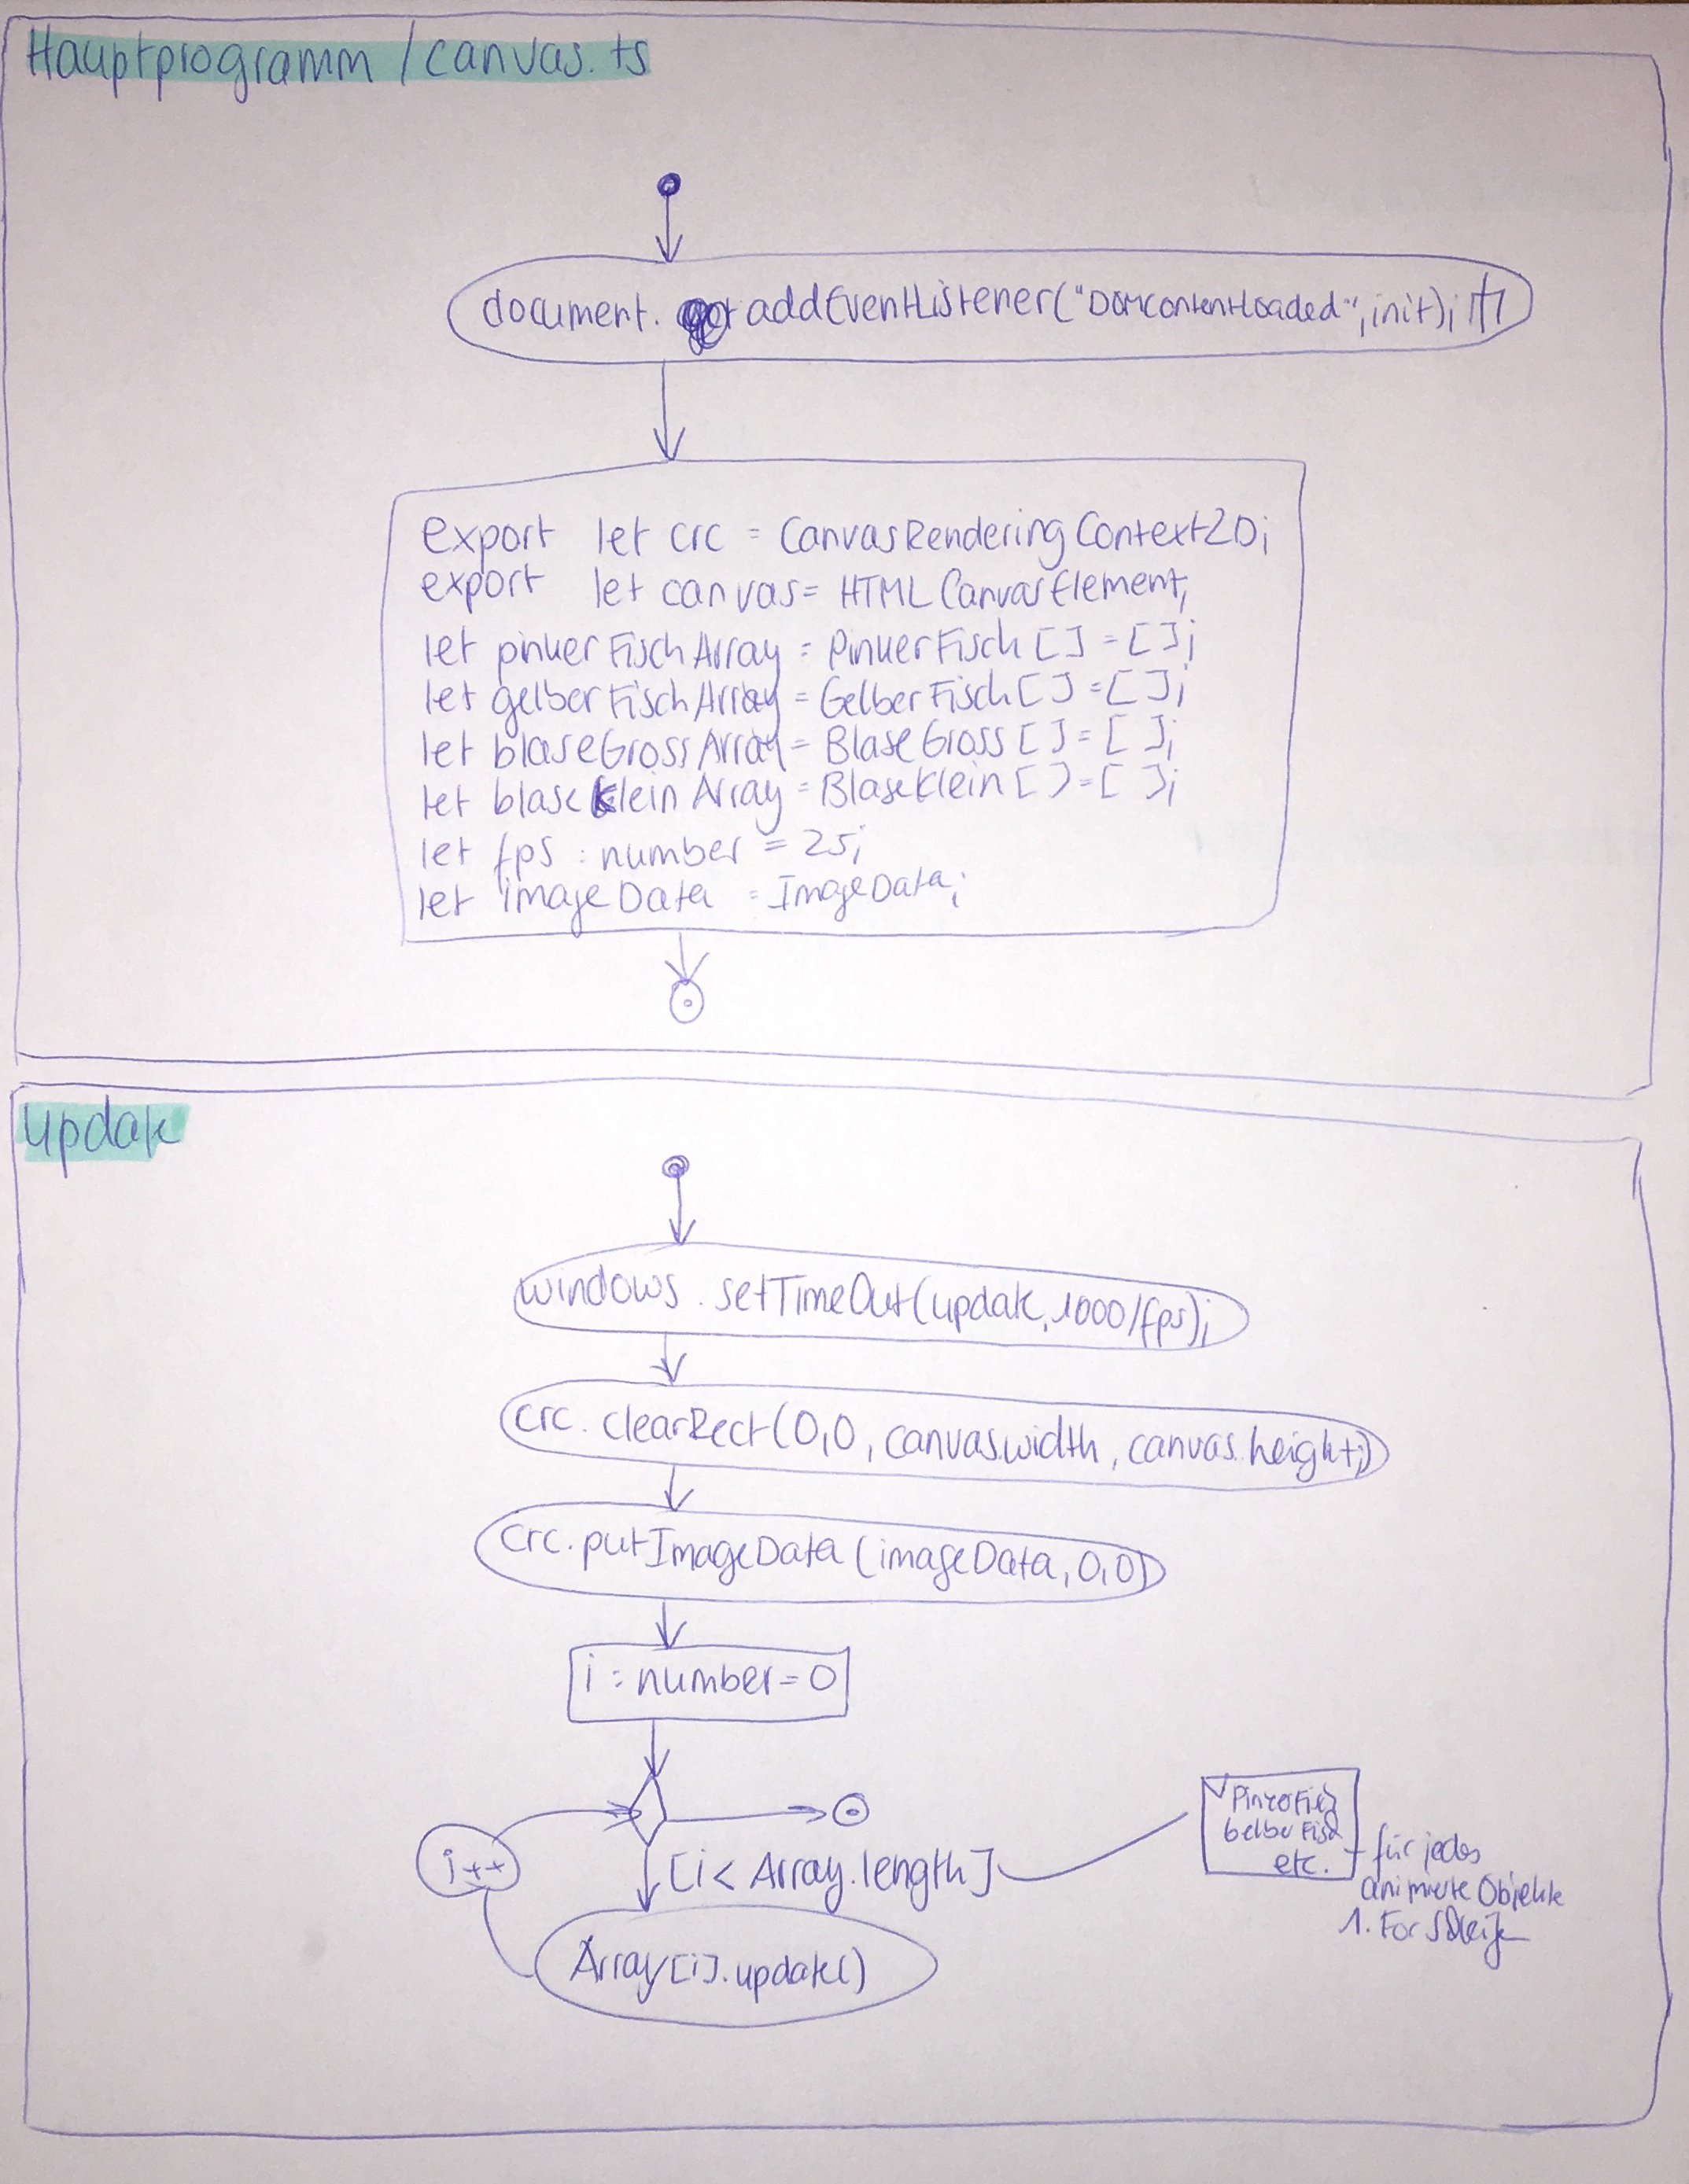 Hauptprogramm / canvas.ts
document. addEventListener("DOMContentLoaded", init);
export let crc = CanvasRenderingContext2D;
export let canvas = HTMLCanvasElement;
let pinkerFischArray = PinkerFisch [ ] = [ ];
let gelberFischArray = GelberFisch [ ] = [ ];
let blaseGrossArray = BlaseGross [ ] = [ ];
let blaseKleinArray = BlaseKlein [ ] = [ ];
let fps : number = 25;
let imageData = ImageData;
update
windows.setTimeOut(update, 1000/fps);
crc.clearRect(0,0, canvas.width, canvas.height;)
crc.putImageData(imageData, 0,0)
i : number = 0
i++
[i < Array.length]
Array[i].update()
etc.
für jedes
animierte Objekte
1. For Schleife